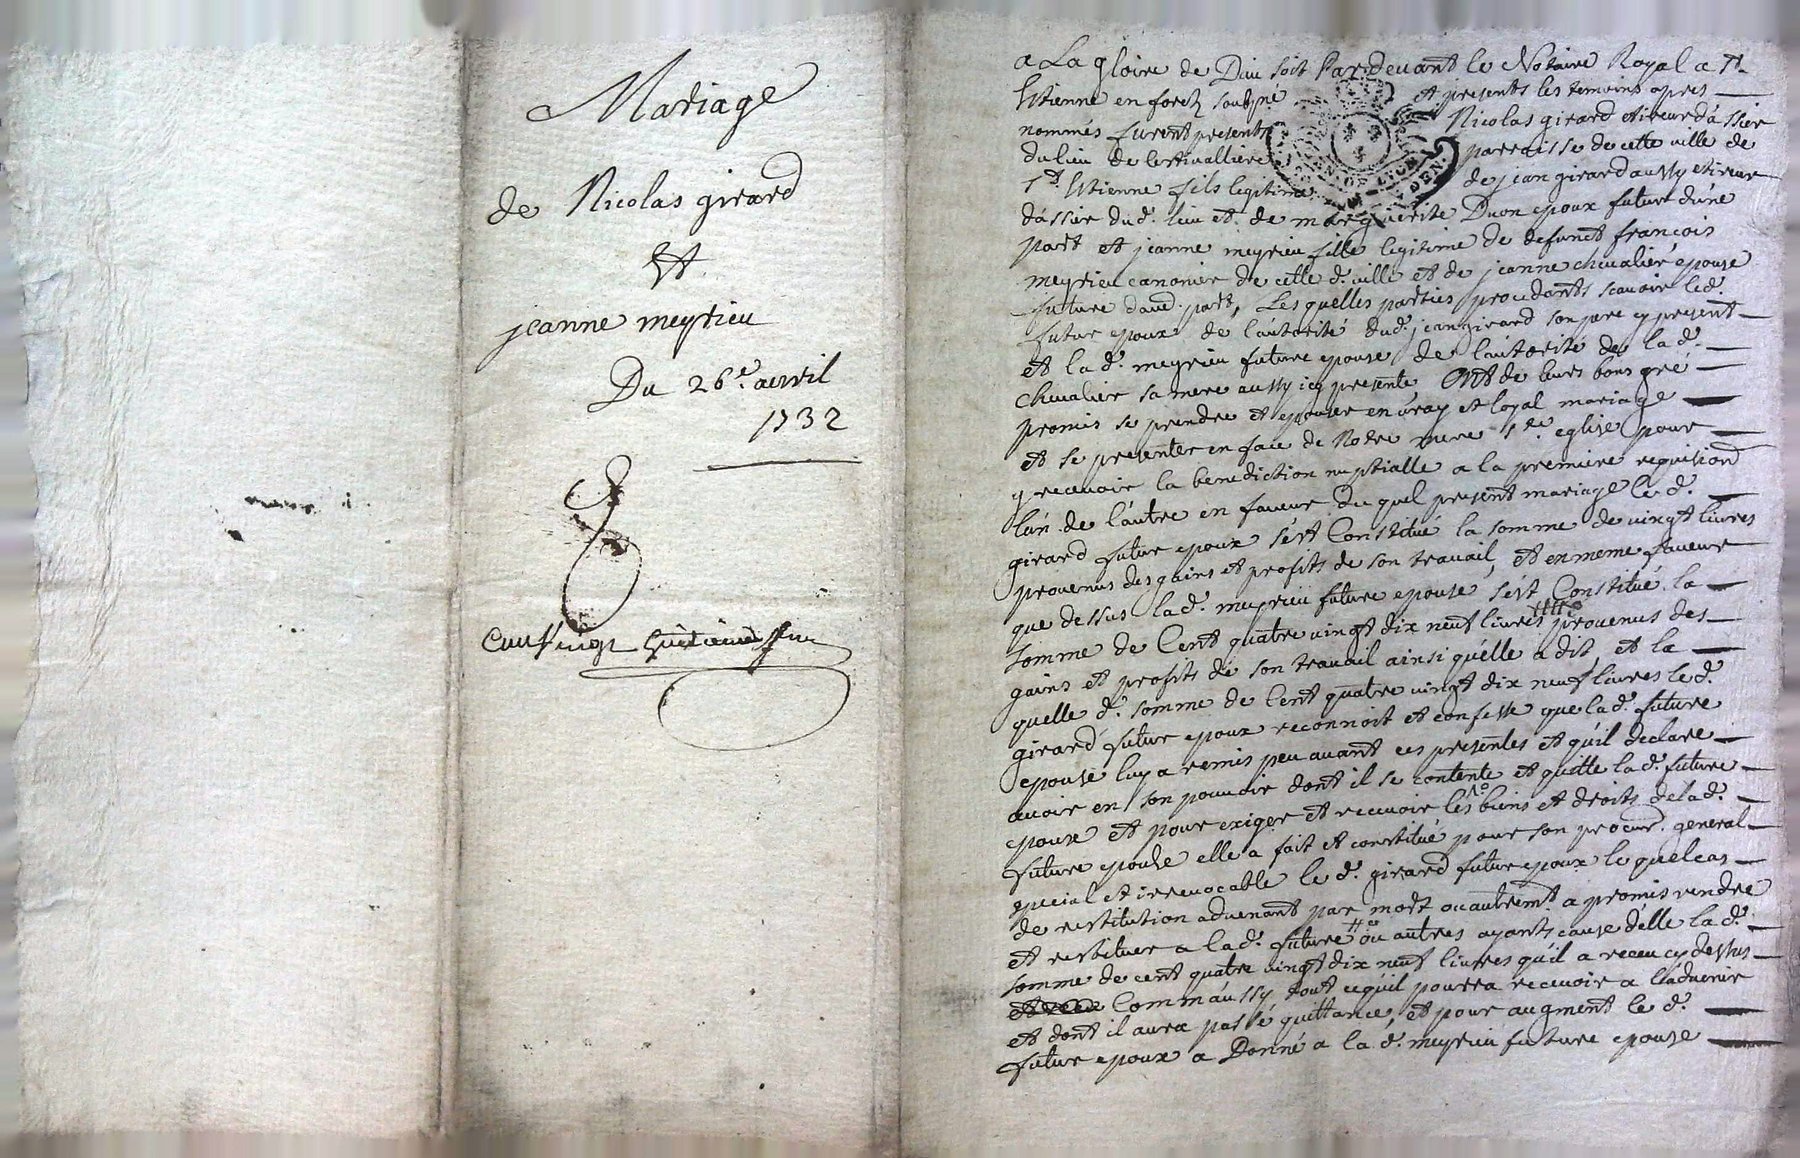 Mariage
de Nicolas girard
Et
jeanne meyrieu
Du 26e. avvril
1732
a La gloire de Dieu soit Par Devant le Notaire Royal a St.
Estienne en forez soubzné et presents les temoins apres
nommés furent presents Nicolas girard etireur d'assier
du lieu de parroisse de cette ville de
St. Estienne fils legitime de jean girard aussy etireur
d'assier dud. lieu et de marguerite Duon epoux futur d'une
part et jeanne meyrieu fille legitime de defunct francois
meyrieu canonier de cette d. ville et de jeanne chevalier epouse
future dautre part, Les quelles parties procedants scavoir led.
futur epoux de l'autorité dud. jean girard son pere cy present
et la d. meyrieu future epouse, de l'autorité de la d.
chevalier sa mere aussy icy presente Ont de leurs bons gré
promis se prendre et epouser en vray et loyal mariage
et se presenter en face de Notre mere Ste. eglise pour
y recevoir la benediction nuptialle a la premiere requision
l'un de l'autre en faveur du quel present mariage le d.
girard futur epoux s'est Constitué la somme de vingt livres
provenus des gains et profits de son travail, et en meme faveur
que dessus la d. meyrieu future epouse, s'est Constitué la
somme de Cent quatre vingt dix neuf livres provenus des
gains et profits de son travail ainsi qu'elle a dit, et la
quelle d. somme de Cent quatre vingt dix neuf livres le d.
girard futur epoux reconnoit et confesse que la d. future
epouse luy a remis peu avant ces presentes et qu'il declare
avoir en son pouvoir dont il se contente et quitte la d. future
epouse et pour exiger et recevoir les biens et droits de la d.
future epouse elle a fait et constitué pour son procur. general
special et irrevocable le d. girard futur epoux le quel cas
de restitution advenant par mort ou autremt. a promis rendre
et restituer a la d. future ou autres ayants cause d'elle la d.
somme de cent quatre vingt dix neuf livres qu'il a receu cy dessus
Comm'aussy tout ce qu'il pourra recevoir a l'advenir
et dont il aura passé quittance, et pour augment le d.
futur epoux a Donné a la d. meyrieu future epouse